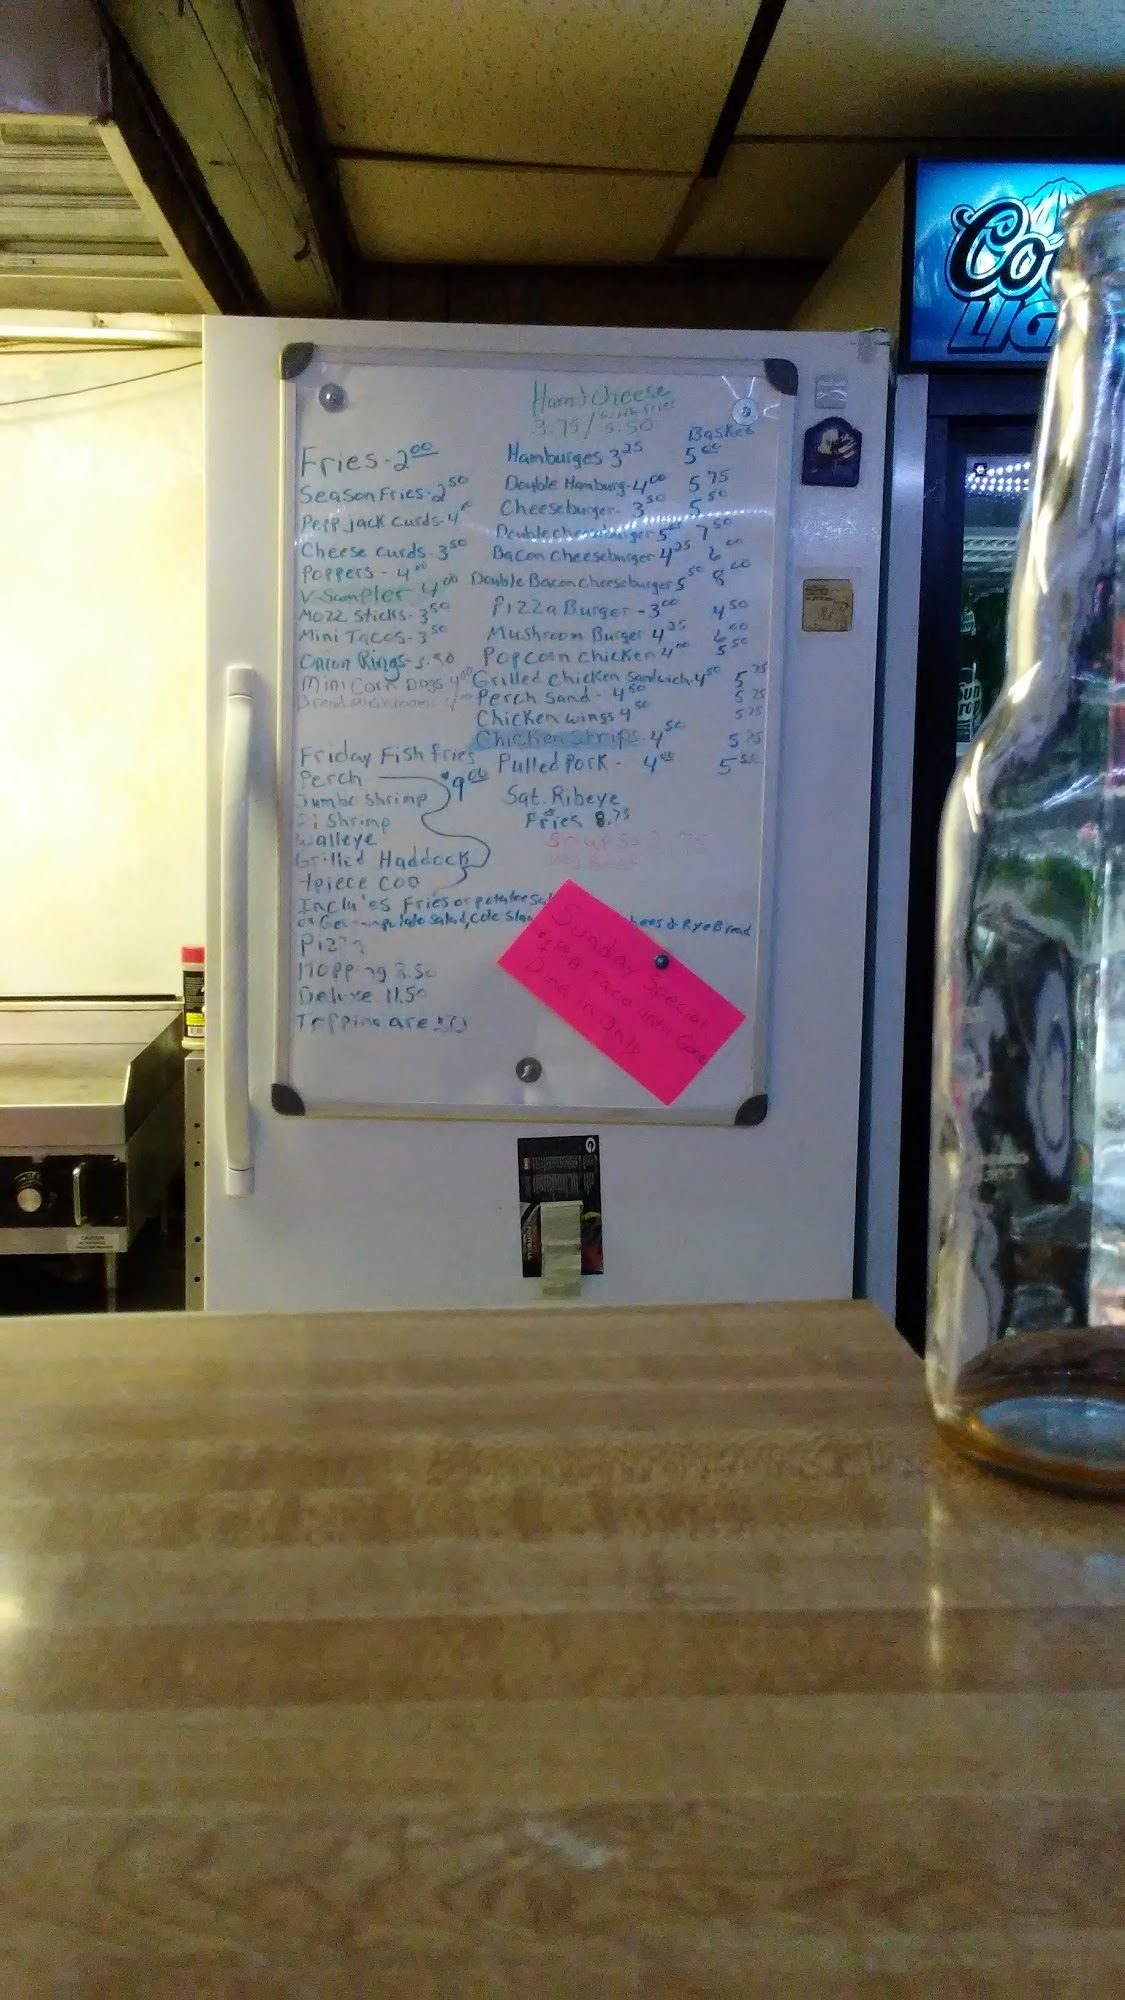 Ham & Cheese
3.75/ with fries 5.50
Basket
Fries - 2.00
Season Fries - 2.50
Pepp jack curds - 4.00
Cheese curds - 3.50
Poppers - 4.00
V-Sampler 4.00
Mozz Sticks - 3.50
Mini Tacos - 3.50
Onion Rings -
Mini Corn Dogs 4.00
Bread Mushrooms 4
Hamburges 3.25 5.00
Double Hamburg - 4.00 5.75
Cheeseburger - 3.50 5.50
Double cheeseburger 7.50
Bacon cheeseburger 4.25 6.00
Double Bacon cheeseburger 5.50
Pizza Burger - 3.00 4.50
Mushroom Burger 4.25 6.00
Popcorn chicken 4.00 5.50
Grilled chicken sandwich - 4.50 5.75
Perch Sand - 4.50 5.75
Chicken wings 4.50 5.75
Chicken Strips 4.50 5.75
Pulled Pork - 4.00 5.50
Friday Fish fries
Perch
Jumbo Shrimp
Shrimp
Walleye
Grilled Haddock
piece COD
9.00
Fries or potatoe
potato salad, Cole Slaw & Rye Bread
Sat. Ribeye
& Fries 8.75
Pizza
Deluxe 11.50
Topping are
Sunday Special
A Taco until Gone
Dine in Only
Coo
LIG
CAUTION